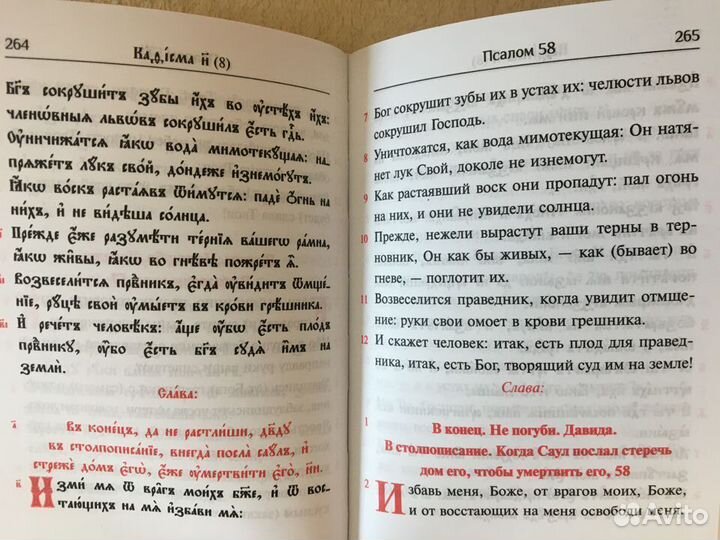 264
Каѳі́сма и҃ (8)
Бг҃ъ сокрꙋши́тъ зꙋ́бы и҆́хъ во ᲂу҆стѣ́хъ и҆́хъ:
члено́вныѧ львѡ́въ сокрꙋши́лъ є҆́сть гдⷭ҇ь.
Оу҆ничижа́тсѧ ꙗ҆́кѡ вода̀ мимотекꙋ́щаѧ: на-
прѧже́тъ лꙋ́къ сво́й, до́ндеже и҆знемо́гꙋтъ.
Ꙗ҆́кѡ во́скъ раста́ѧвъ ѿи́мꙋтсѧ: падѐ ѻ҆́гнь на
ни́хъ, и҆ не ви́дѣша со́лнца.
Пре́жде є҆́же разꙋмѣ́ти те́рнїѧ ва́шегѡ ра́мна,
ꙗ҆́кѡ жи́вы, ꙗ҆́кѡ во гнѣ́вѣ пожре́тъ ѧ҆̀.
Возвесели́тсѧ првⷣникъ, є҆гда̀ ᲂу҆ви́дитъ ѿмще́-
нїе, рꙋ́цѣ свои́ ᲂу҆мы́етъ въ кро́ви грѣ́шника.
в҃і И҆ рече́тъ человѣ́къ: а҆́ще ᲂу҆́бѡ є҆́сть пло́дъ
првⷣникꙋ, ᲂу҆́бѡ є҆́сть бг҃ъ сꙋдѧ̀ и҆̀мъ на
землѝ.
Сла́ва:
а҃ Въ коне́цъ, да не растли́ши, дв҃дꙋ
въ столпописа́нїе, внегда̀ посла̀ саꙋ́лъ, и҆
стрежѐ до́мъ є҆гѡ̀, є҆́же ᲂу҆мертви́ти є҆го̀, н҃и.
в҃ И҆зми́ мѧ ѿ вра̑гъ мои́хъ бж҃е, и҆ ѿ воз-
стаю́щихъ на мѧ̀ и҆зба́ви мѧ̀:
Псалом 58
265
7 Бог сокрушит зубы их в устах их: челюсти львов
сокрушил Господь.
8 Уничтожатся, как вода мимотекущая: Он натя-
нет лук Свой, доколе не изнемогут.
9 Как растаявший воск они пропадут: пал огонь
на них, и они не увидели солнца.
10 Прежде, нежели вырастут ваши терны в тер-
новник, Он как бы живых, — как (бывает) во
гневе, — поглотит их.
11 Возвеселится праведник, когда увидит отмще-
ние: руки свои омоет в крови грешника.
12 И скажет человек: итак, есть плод для правед-
ника, итак, есть Бог, творящий суд им на земле!
Слава:
1 В конец. Не погуби. Давида.
В столпописание. Когда Саул послал стеречь
дом его, чтобы умертвить его, 58
2 Избавь меня, Боже, от врагов моих, Боже,
и от восстающих на меня освободи меня.
Avito